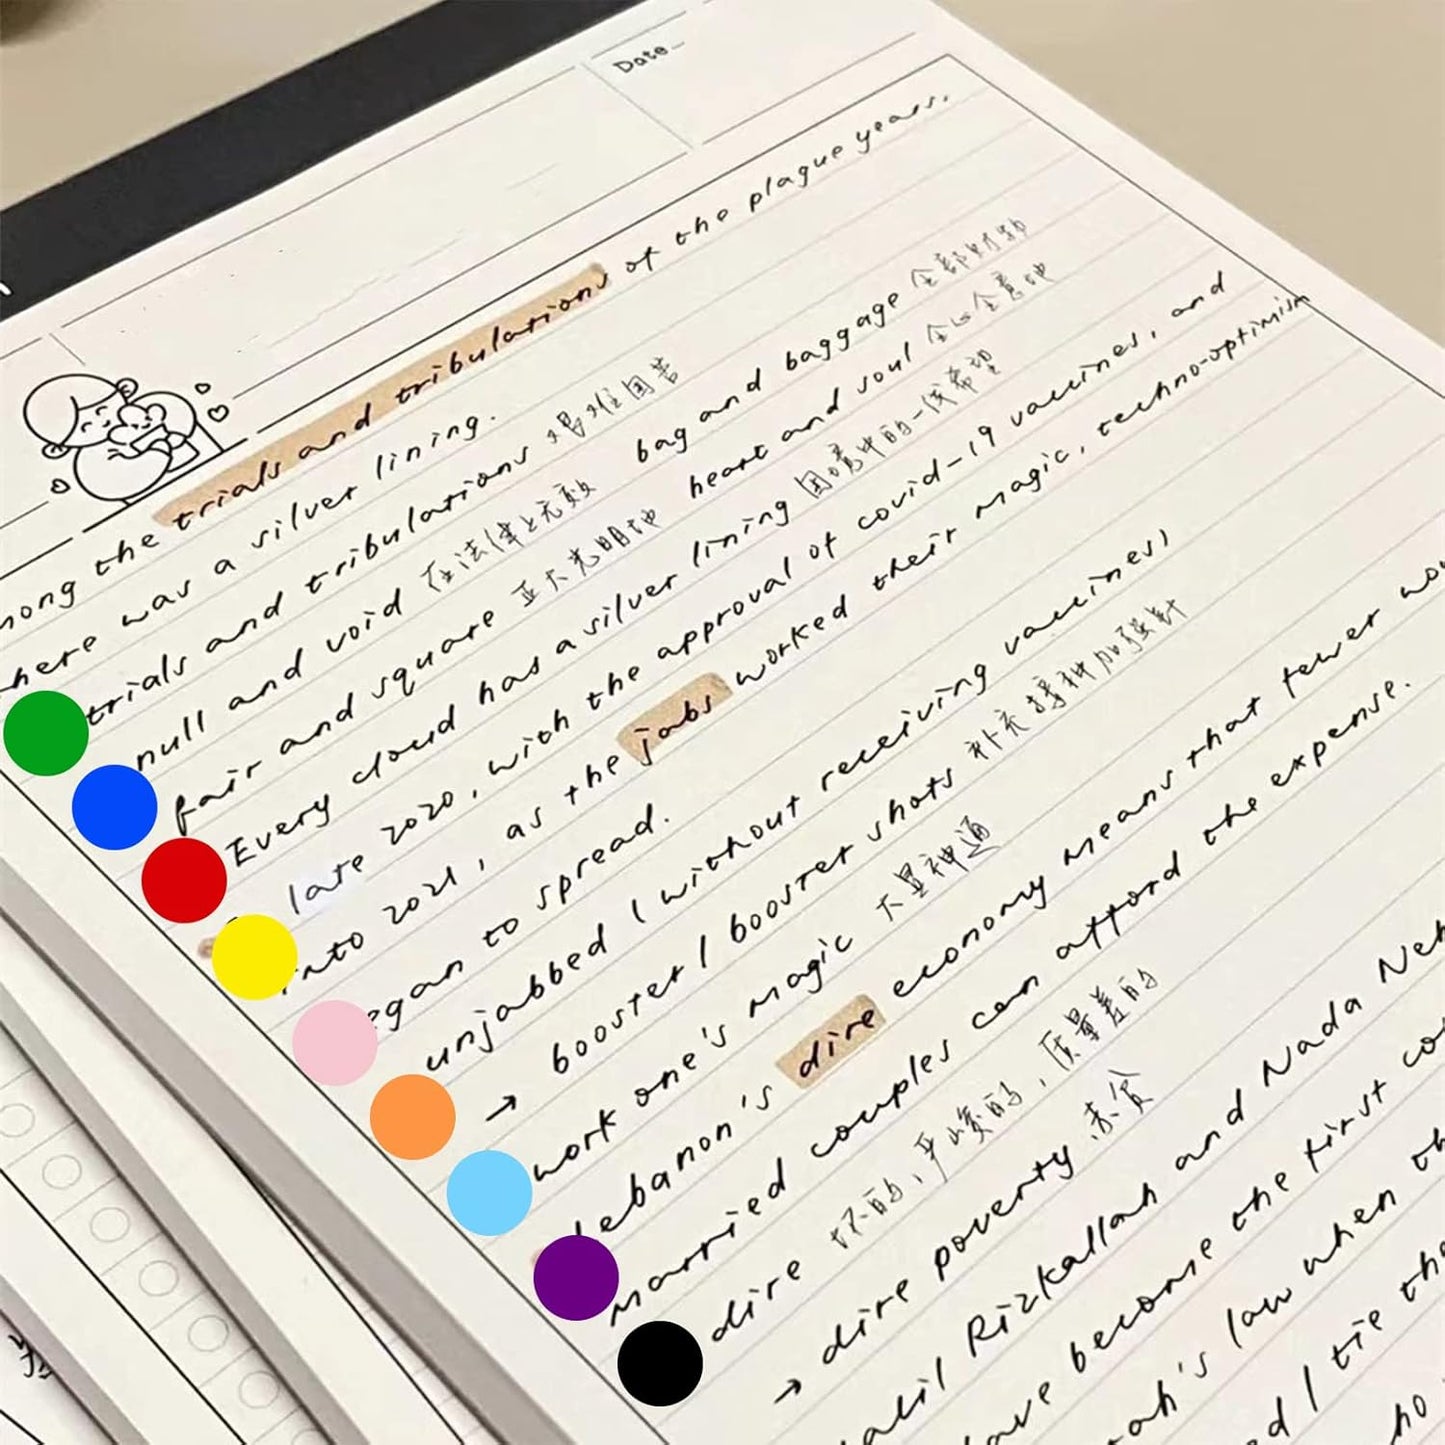 Date
the trials and tribulations of the plague years,
was a silver lining.
trials and tribulations 艰难困苦 bag and baggage 全部财物
null and void 在法律上无效 heart and soul 全心全意地
fair and square 正大光明地
Every cloud has a silver lining 困境中的一线希望
late 2020, with the approval of covid-19 vaccines, and
into 2021, as the jabs worked their magic, techno-optimism
to spread.
unjabbed (without receiving vaccines)
→ booster / booster shots 补充接种加强针
work one's magic 大显神通
Lebanon's dire economy means that fewer
married couples can afford the expense.
dire 坏的,严峻的,质量差的
→ dire poverty 赤贫
Rizkallah and Nada
become the first
law when
I tie